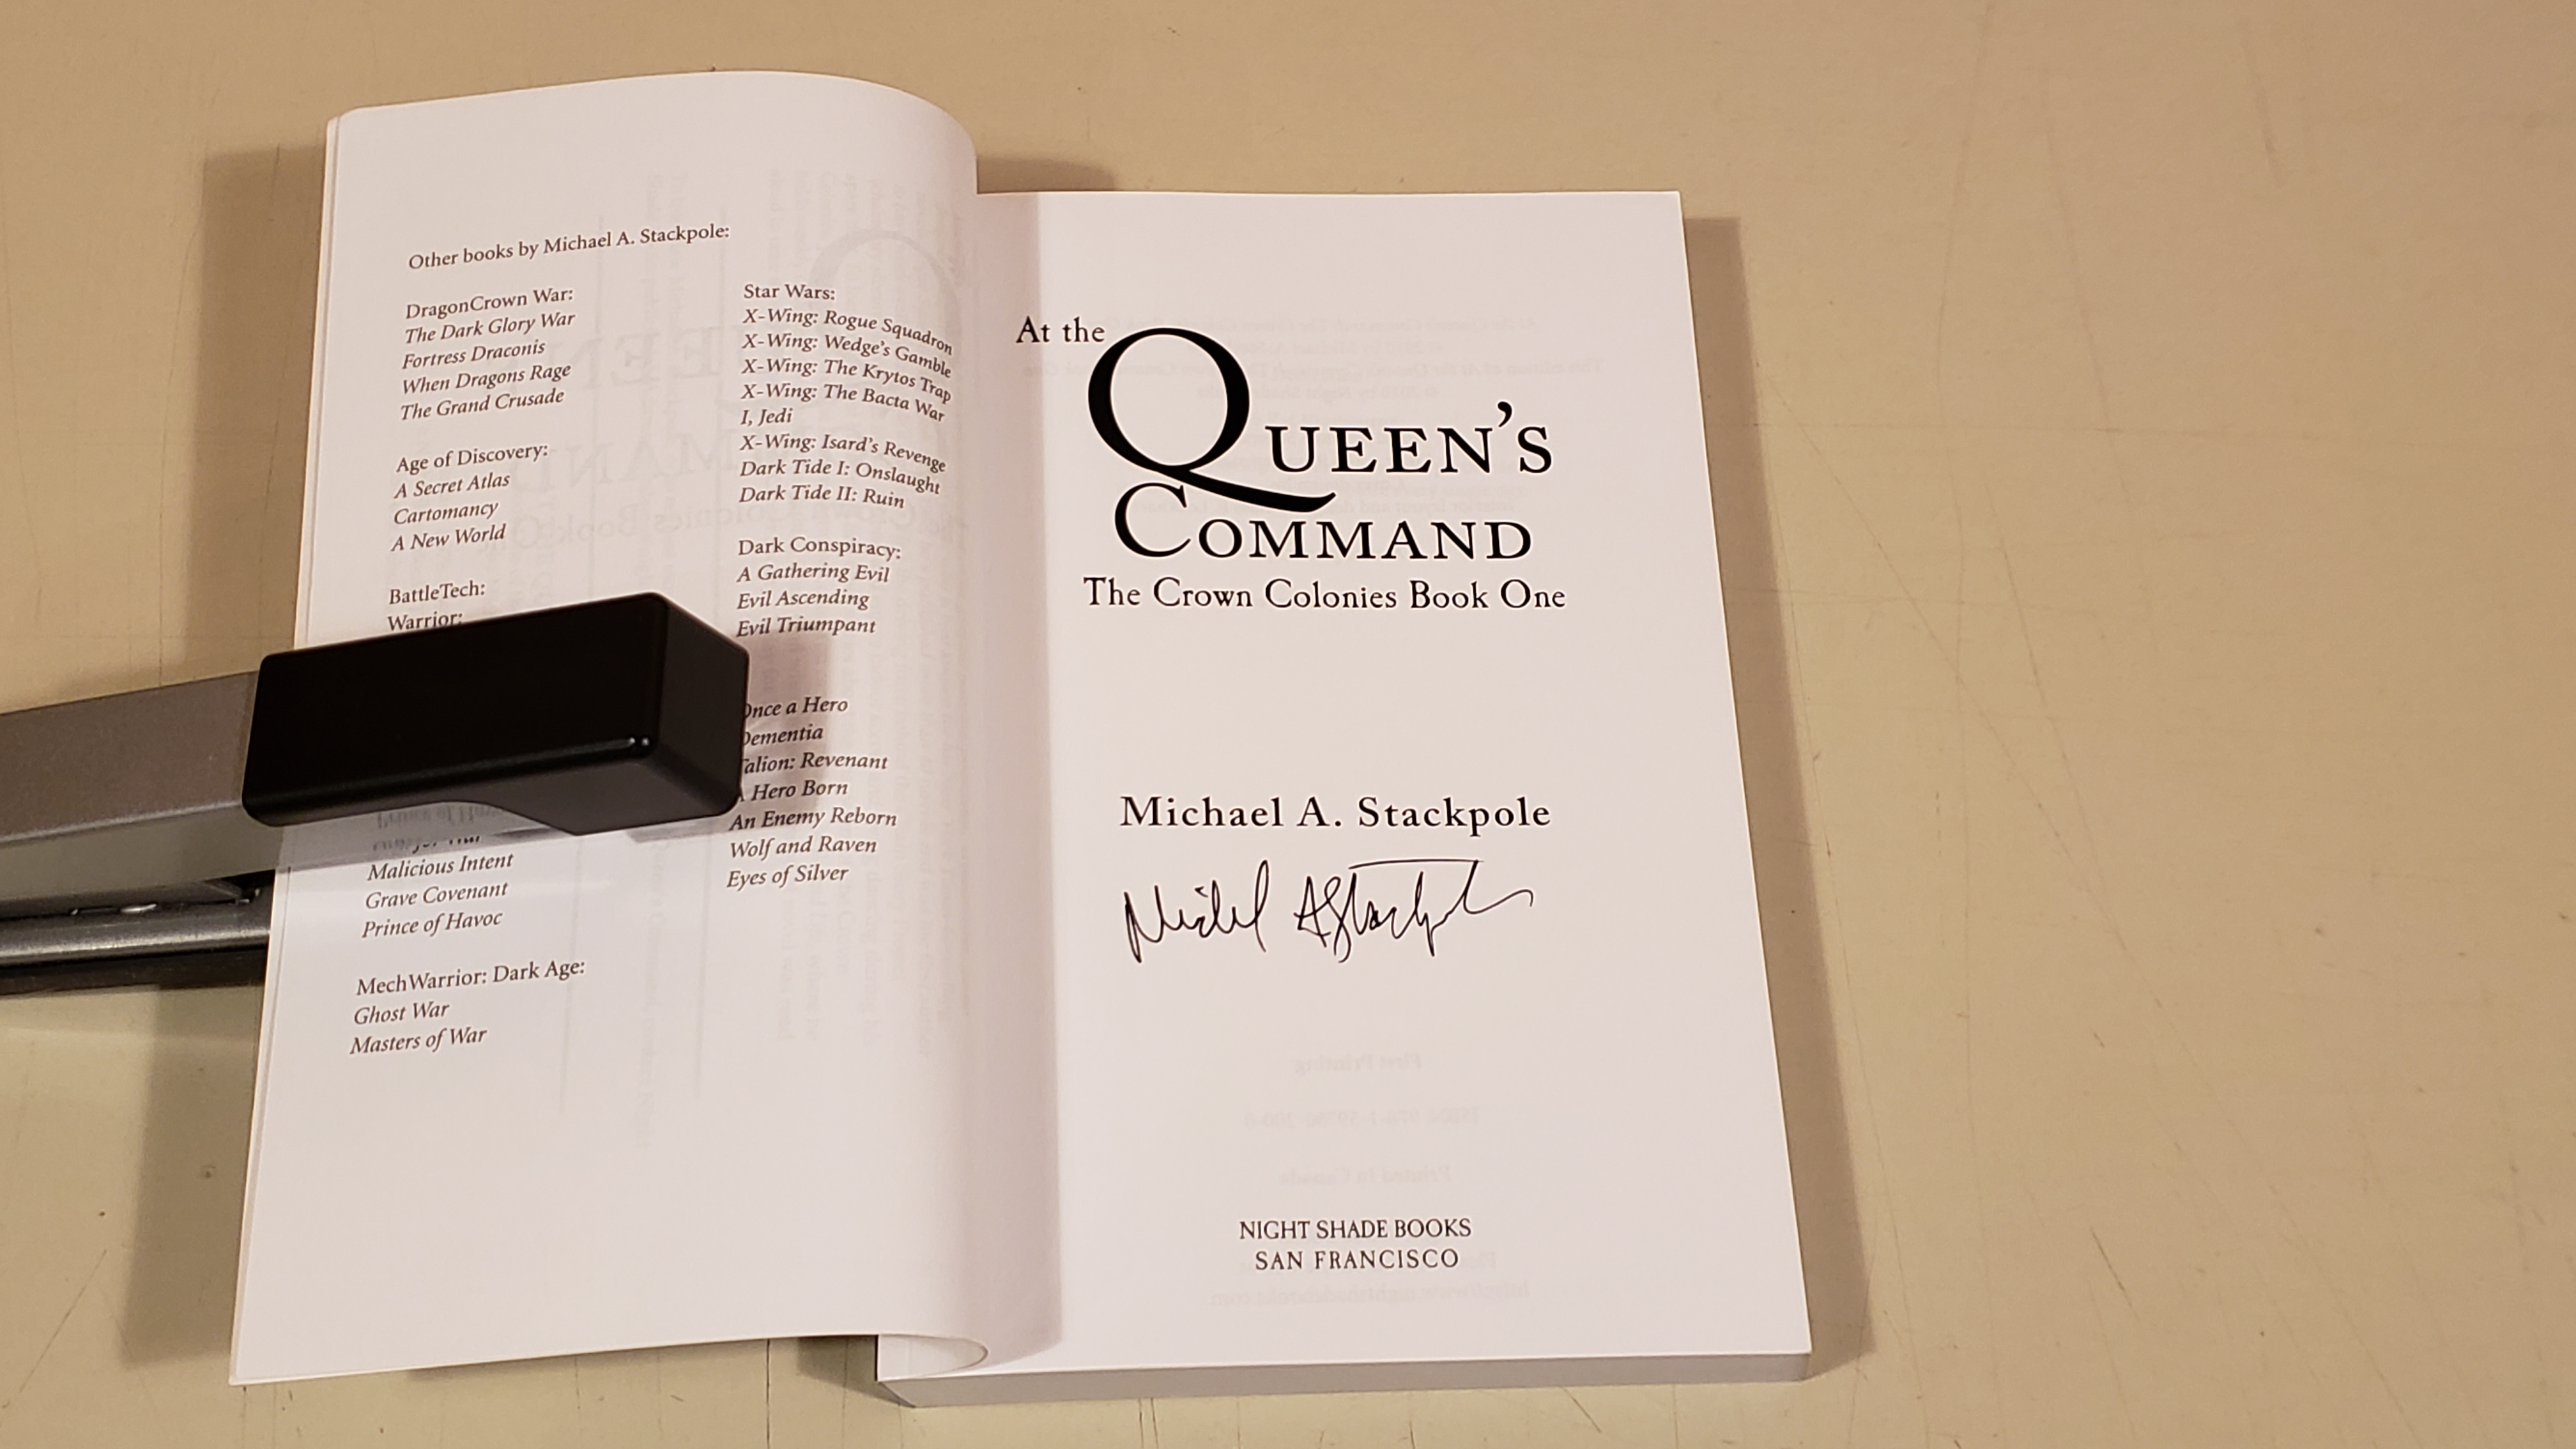 Other books by Michael A. Stackpole:
DragonCrown War:
The Dark Glory War
Fortress Draconis
When Dragons Rage
The Grand Crusade
Age of Discovery:
A Secret Atlas
Cartomancy
A New World
BattleTech:
Warrior:
Malicious Intent
Grave Covenant
Prince of Havoc
MechWarrior: Dark Age:
Ghost War
Masters of War
Star Wars:
X-Wing: Rogue Squadron
X-Wing: Wedge's Gamble
X-Wing: The Krytos Trap
X-Wing: The Bacta War
I, Jedi
X-Wing: Isard's Revenge
Dark Tide I: Onslaught
Dark Tide II: Ruin
Dark Conspiracy:
A Gathering Evil
Evil Ascending
Evil Triumpant
Once a Hero
Dementia
Talion: Revenant
A Hero Born
An Enemy Reborn
Wolf and Raven
Eyes of Silver
At the
QUEEN'S
COMMAND
The Crown Colonies Book One
Michael A. Stackpole
Michael A Stackpole
NIGHT SHADE BOOKS
SAN FRANCISCO